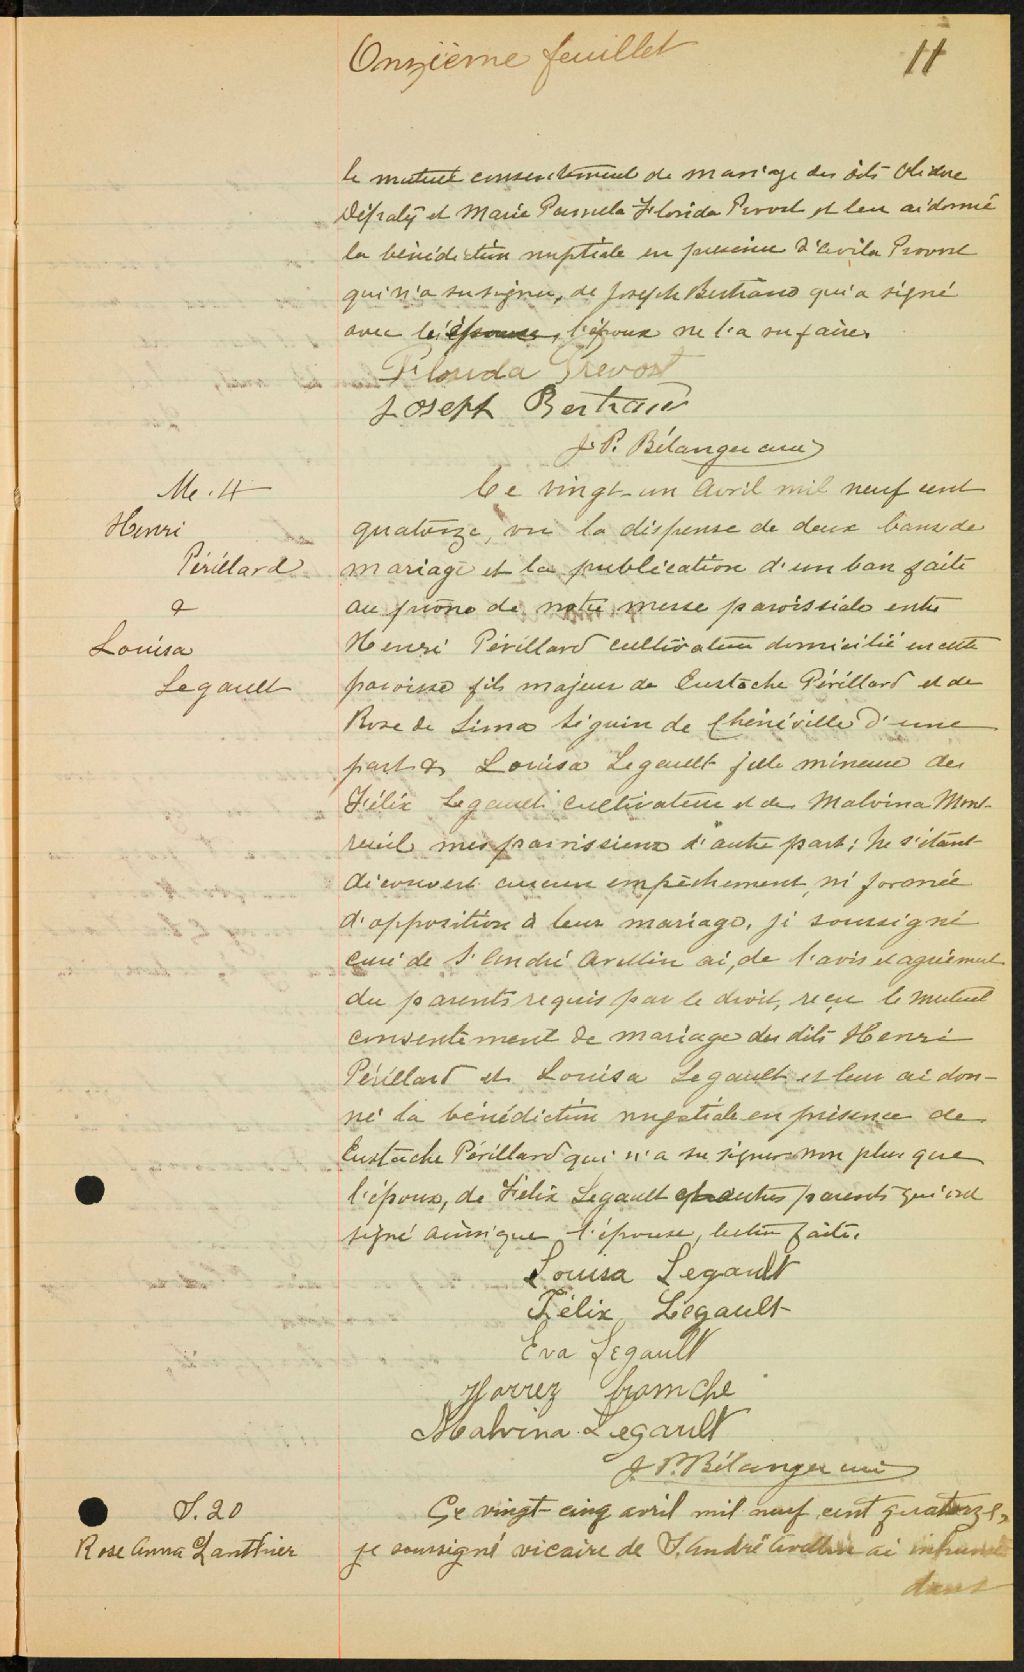 Onzième feuillet
11
le mutuel consentement de mariage des dits
et Marie Florida Provost et leur ai donné
la bénédiction nuptiale en présence d'Avila Provost
qui n'a su signer, de Joseph Bertrand qui a signé
avec l'épouse, l'époux ne l'a su faire.
Florida Prevost
Joseph Bertrand
J. P. Bélanger curé
M. 4
Henri
Périllard
&
Louisa
Legault
Ce vingt-un Avril mil neuf cent
quatorze, vu la dispense de deux bans de
mariage et la publication d'un ban faite
au prône de notre messe paroissiale entre
Henri Périllard cultivateur domicilié en cette
paroisse fils majeur de Eustache Périllard et de
Rose de Lima Séguin de Chénéville d'une
part & Louisa Legault fille mineure de
Félix Legault cultivateur et de Malvina Mon-
treuil mes paroissiens d'autre part; ne s'étant
découvert aucun empêchement, ni formée
d'opposition à leur mariage, je soussigné
curé de S. André Avellin ai, de l'avis et agrément
des parents requis par le droit, reçu le mutuel
consentement de mariage des dits Henri
Périllard et Louisa Legault et leur ai don-
né la bénédiction nuptiale en présence de
Eustache Périllard qui n'a su signer non plus que
l'époux, de Félix Legault et autres parents qui ont
signé ainsi que l'épouse, lecture faite.
Louisa Legault
Félix Legault
Eva Legault
Malvina Legault
J. P. Bélanger curé
S. 20
Rose Anna Lanthier
Ce vingt-cinq avril mil neuf cent quatorze,
je soussigné vicaire de S. André Avellin ai inhumé
dans